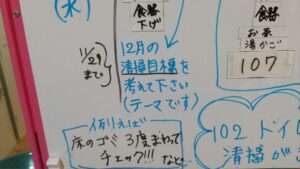 (水)
食器
下げ
食器
お茶
湯かご
107
11/29
まで
12月の
清掃目標を
考えて下さい
(テーマです)
例えば
床のゴミ 3度まわって
チェック!!! など…
102 ドイ
清掃が